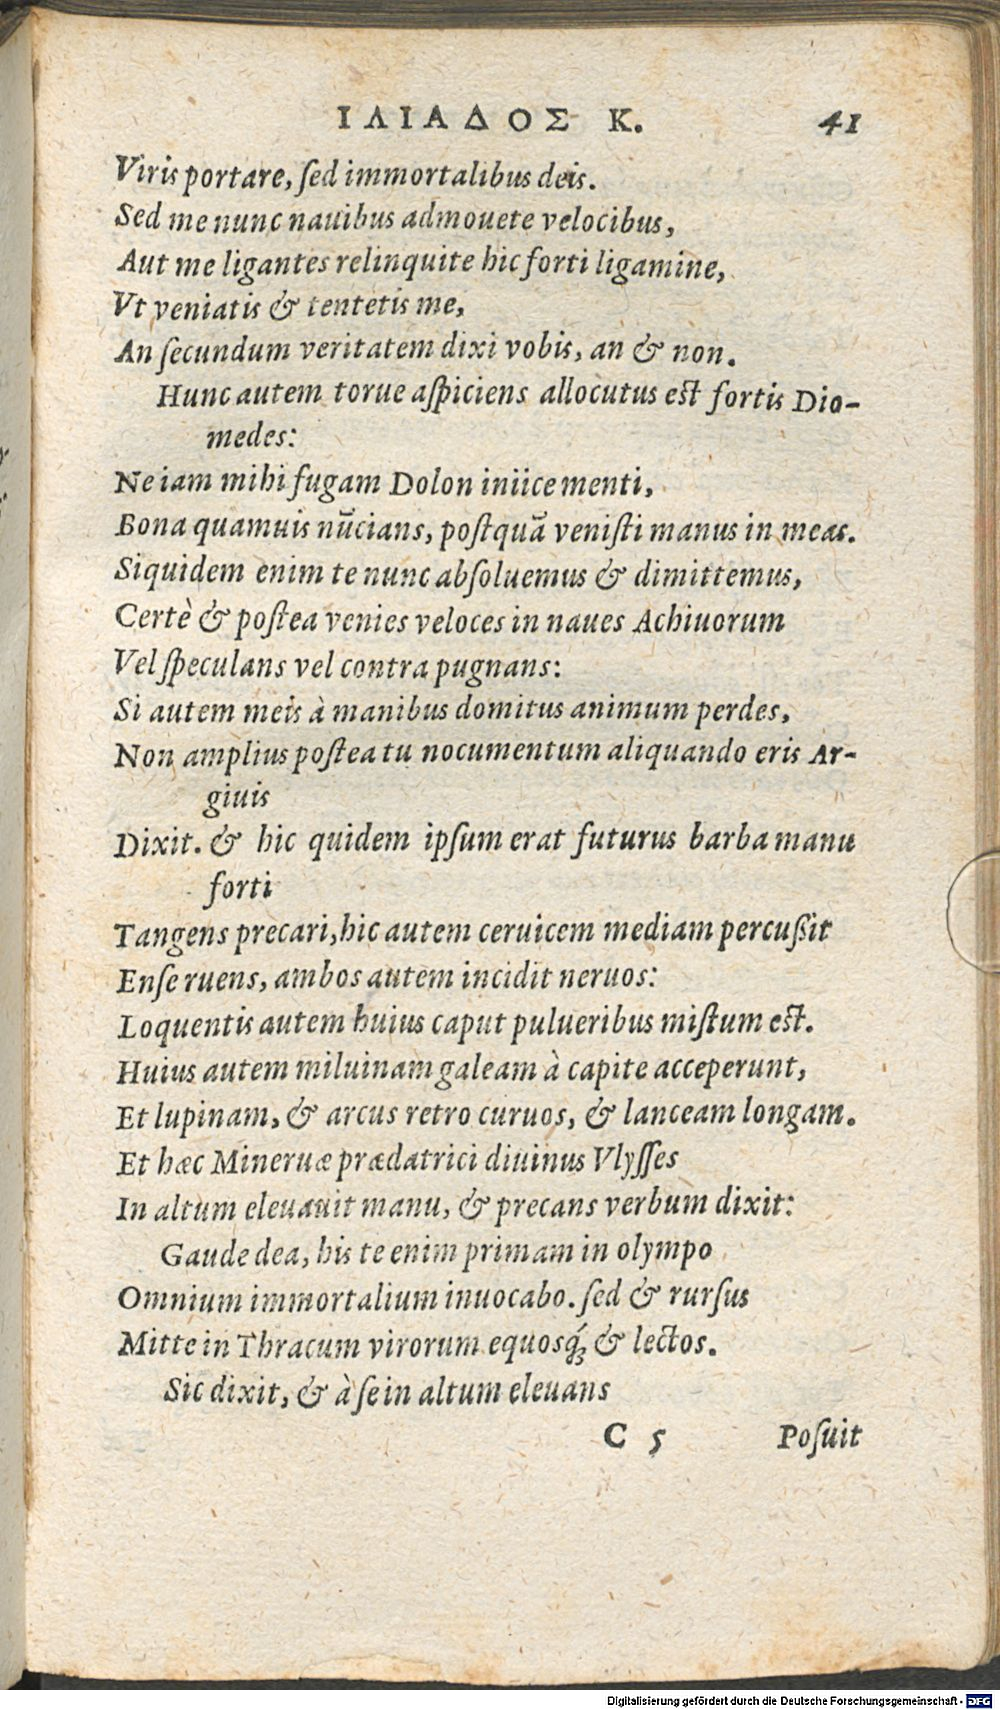 ΙΛΙΑΔΟΣ Κ. 41
Viris portare, ſed immortalibus deis.
Sed me nunc nauibus admouete velocibus,
Aut me ligantes relinquite hic forti ligamine,
Vt veniatis & tentetis me,
An ſecundum veritatem dixi vobis, an & non.
Hunc autem torue aſpiciens allocutus eſt fortis Dio-
medes:
Ne iam mihi fugam Dolon iniice menti,
Bona quamuis nūcians, poſtquā veniſti manus in meas.
Siquidem enim te nunc abſoluemus & dimittemus,
Certè & poſtea venies veloces in naues Achiuorum
Vel ſpeculans vel contra pugnans:
Si autem meis à manibus domitus animum perdes,
Non amplius poſtea tu nocumentum aliquando eris Ar-
giuis
Dixit. & hic quidem ipſum erat futurus barba manu
forti
Tangens precari, hic autem ceruicem mediam percußit
Enſe ruens, ambos autem incidit neruos:
Loquentis autem huius caput pulueribus miſtum eſt.
Huius autem miluinam galeam à capite acceperunt,
Et lupinam, & arcus retro curuos, & lanceam longam.
Et hæc Mineruæ prædatrici diuinus Vlyſſes
In altum eleuauit manu, & precans verbum dixit:
Gaude dea, his te enim primam in olympo
Omnium immortalium inuocabo. ſed & rurſus
Mitte in Thracum virorum equosq́; & lectos.
Sic dixit, & à ſe in altum eleuans
C 5 Poſuit
Digitalisierung gefördert durch die Deutsche Forschungsgemeinschaft - DFG